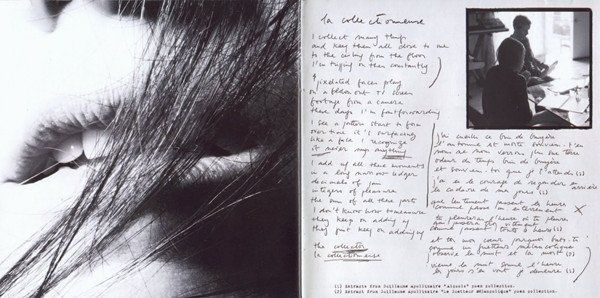 la collectionneuse
I collect many things
and keep them all close to me
to the ceiling from the floor
I'm tripping on them constantly
pixelated faces play
on a blown out tv screen
footage from a camera
these days I'm fast forwarding
I see a pattern start to form
over time it's surfacing
like a face I recognize
it never says anything
I add up all these moments
in a long narrow ledger
decimals of joy
integers of pleasure
the sum of all these parts
I don't know how to measure
they keep on adding up
they just keep on adding up
the collector
la collectionneuse
j'ai cueilli ce brin de bruyère
l'automne est morte souviens-t'en
nous ne nous verrons plus sur terre
odeur du temps brin de bruyère
et souviens-toi que je t'attends (1)
j'ai eu le courage de regarder en arrière
le cadavre de mes jours (1)
que lentement passent les heures
comme passe un enterrement
tu pleureras l'heure où tu pleures
qui passera trop vitement
comme passent toutes heures (1)
et toi mon coeur pourquoi bats-tu
comme un guetteur mélancolique
j'observe la nuit et la mort (2)
vienne la nuit sonne l'heure
les jours s'en vont je demeure (1)
(1) Extracts from Guillaume Apollinaire "Alcools" poem collection.
(2) Extract from Guillaume Apollinaire "Le Guetteur Mélancolique" poem collection.